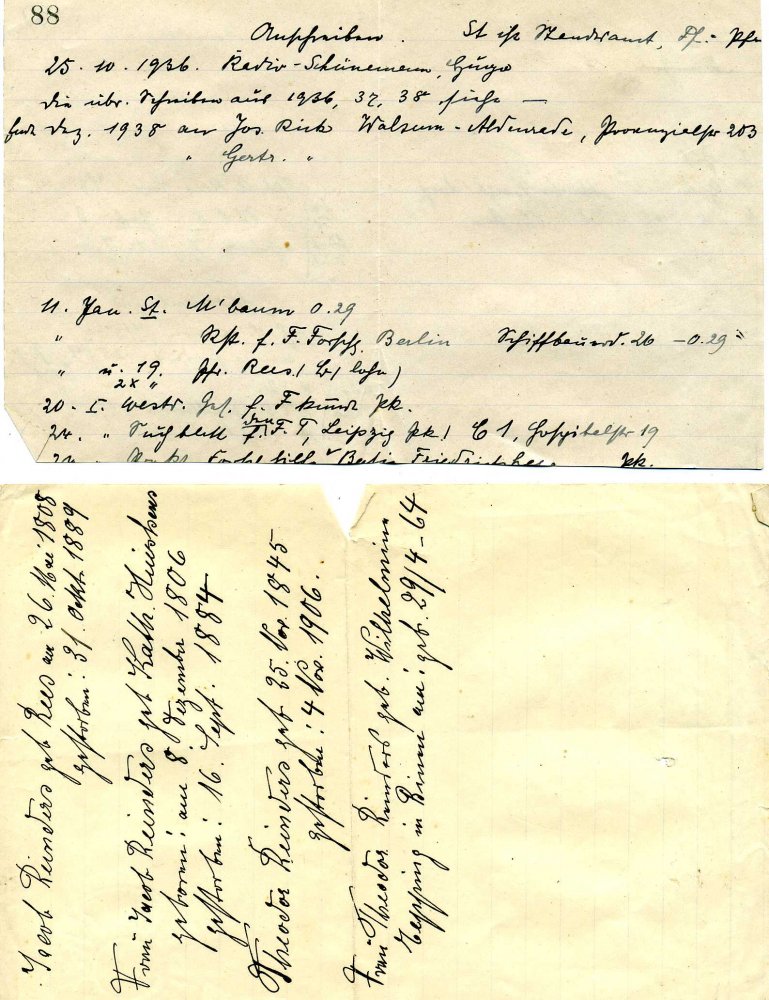 88
Anschreiben. St ist Standesamt, Pf. = Pfr
25. 10. 1936. Radio-Schünemann, Hugo
die übr. Schreiben aus 1936, 37, 38 siehe —
Ende Dez. 1938 an Jos. Rick Walsum-Aldenrade, Provinzialstr 203
" Gertr. "
11. Jan. St. M'baum 0.29
" f. F. Forschg. Berlin Schiffbauerd. 26 – 0.29
" u. 19. Pfr. Rees
2x "
20. I. westd. Ges. f. Fkunde Pk.
24. " Suchblatt f. den F. T, Leipzig Pk / C 1, Hospitalstr 19
Berlin Friedrichs Pk.
Jacob Reinders geb Rees am 26. Mai 1808
gestorben: 31. Oktbr. 1889
Frau Jacob Reinders geb Kath. Hinskens
geboren: am 8 Dezember 1806
gestorben: 16. Sept. 1884
Theodor Reinders geb 25. Nov. 1845
gestorben: 4 Nov. 1906.
Frau Theodor Reinders geb. Wilhelmine
Epping in Bienen am: geb. 29/4-64